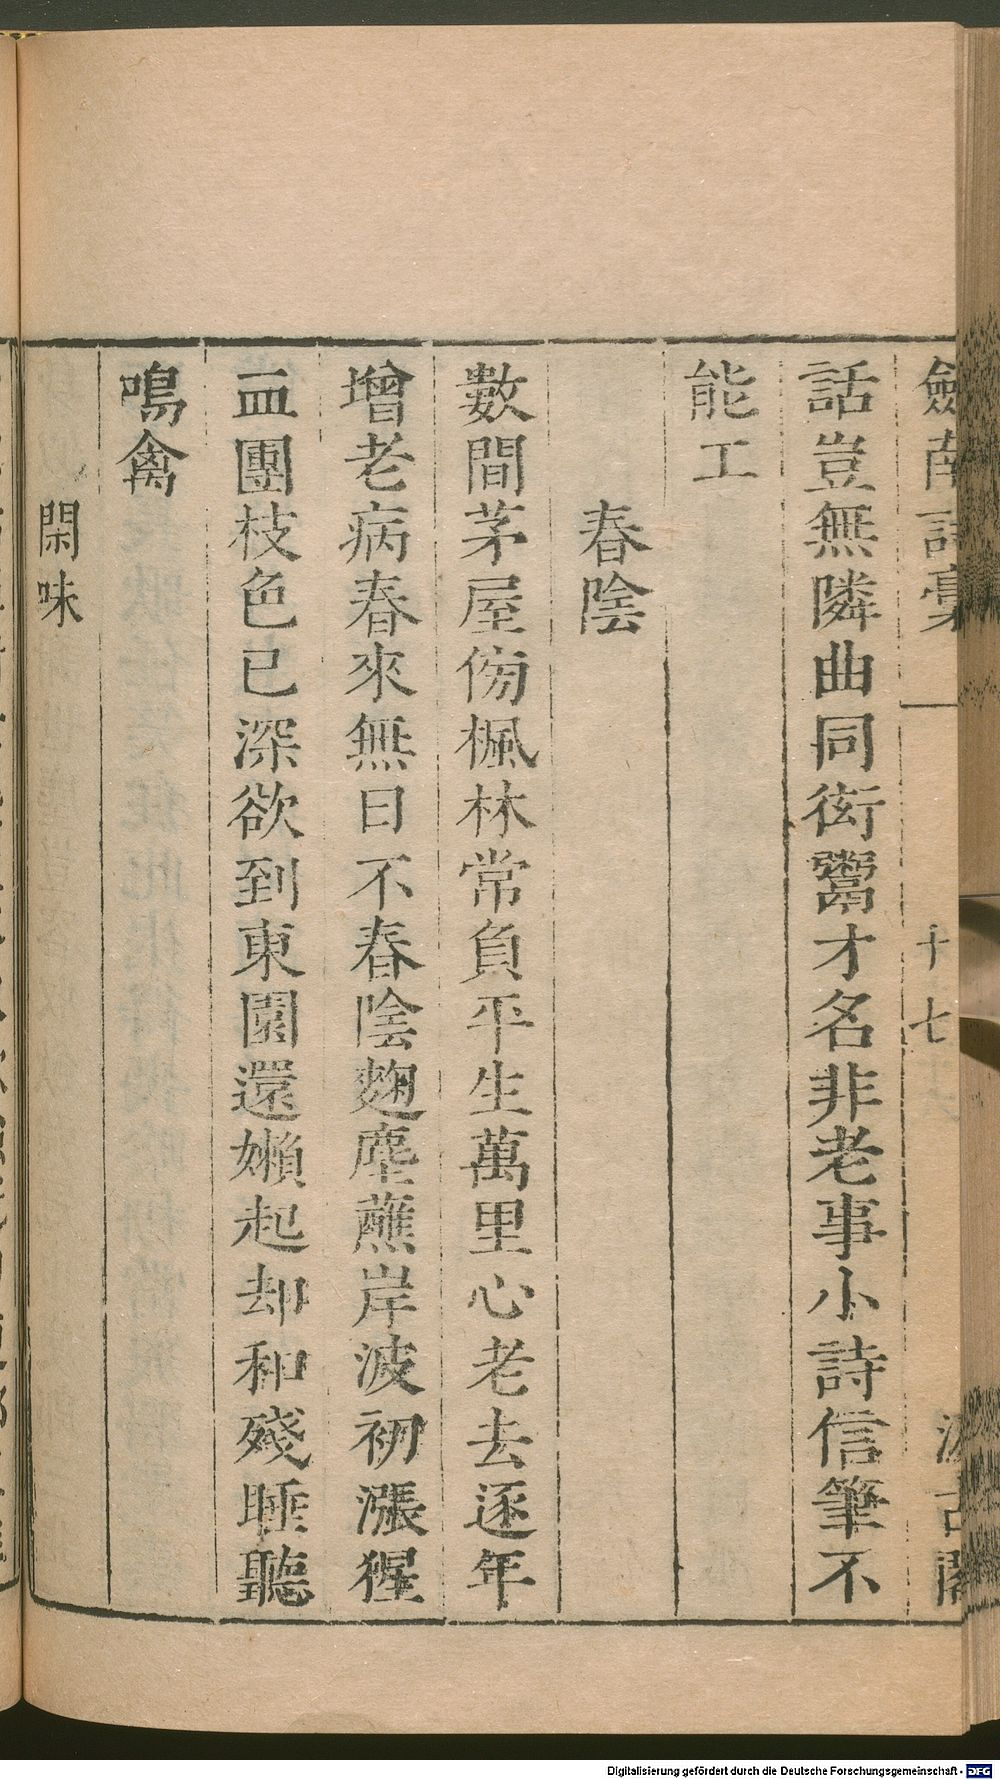 劒南詩稾
十七
汲古閣
話豈無隣曲同銜鬻才名非老事小詩信筆不
能工
春陰
數間茅屋傍楓林常負平生萬里心老去逐年
增老病春來無日不春陰麹塵蘸岸波初漲猩
血團枝色已深欲到東園還嬾起却和殘睡聽
鳴禽
閑味
Digitalisierung gefördert durch die Deutsche Forschungsgemeinschaft - DFG